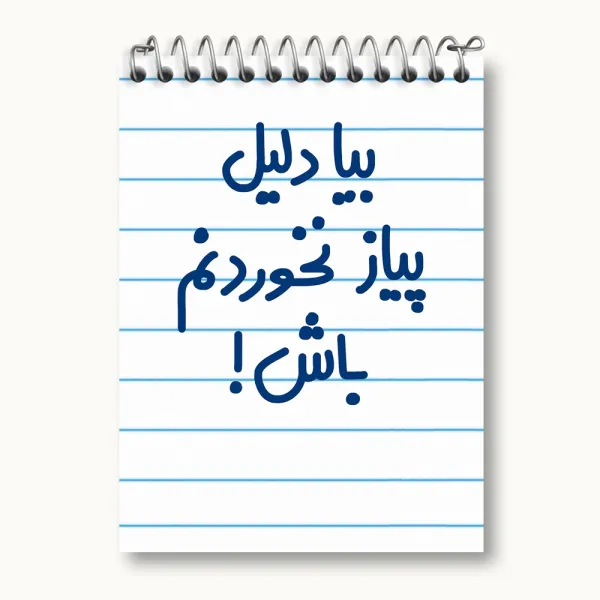 بیا دلیل
پیاز نخوردنم
باش!